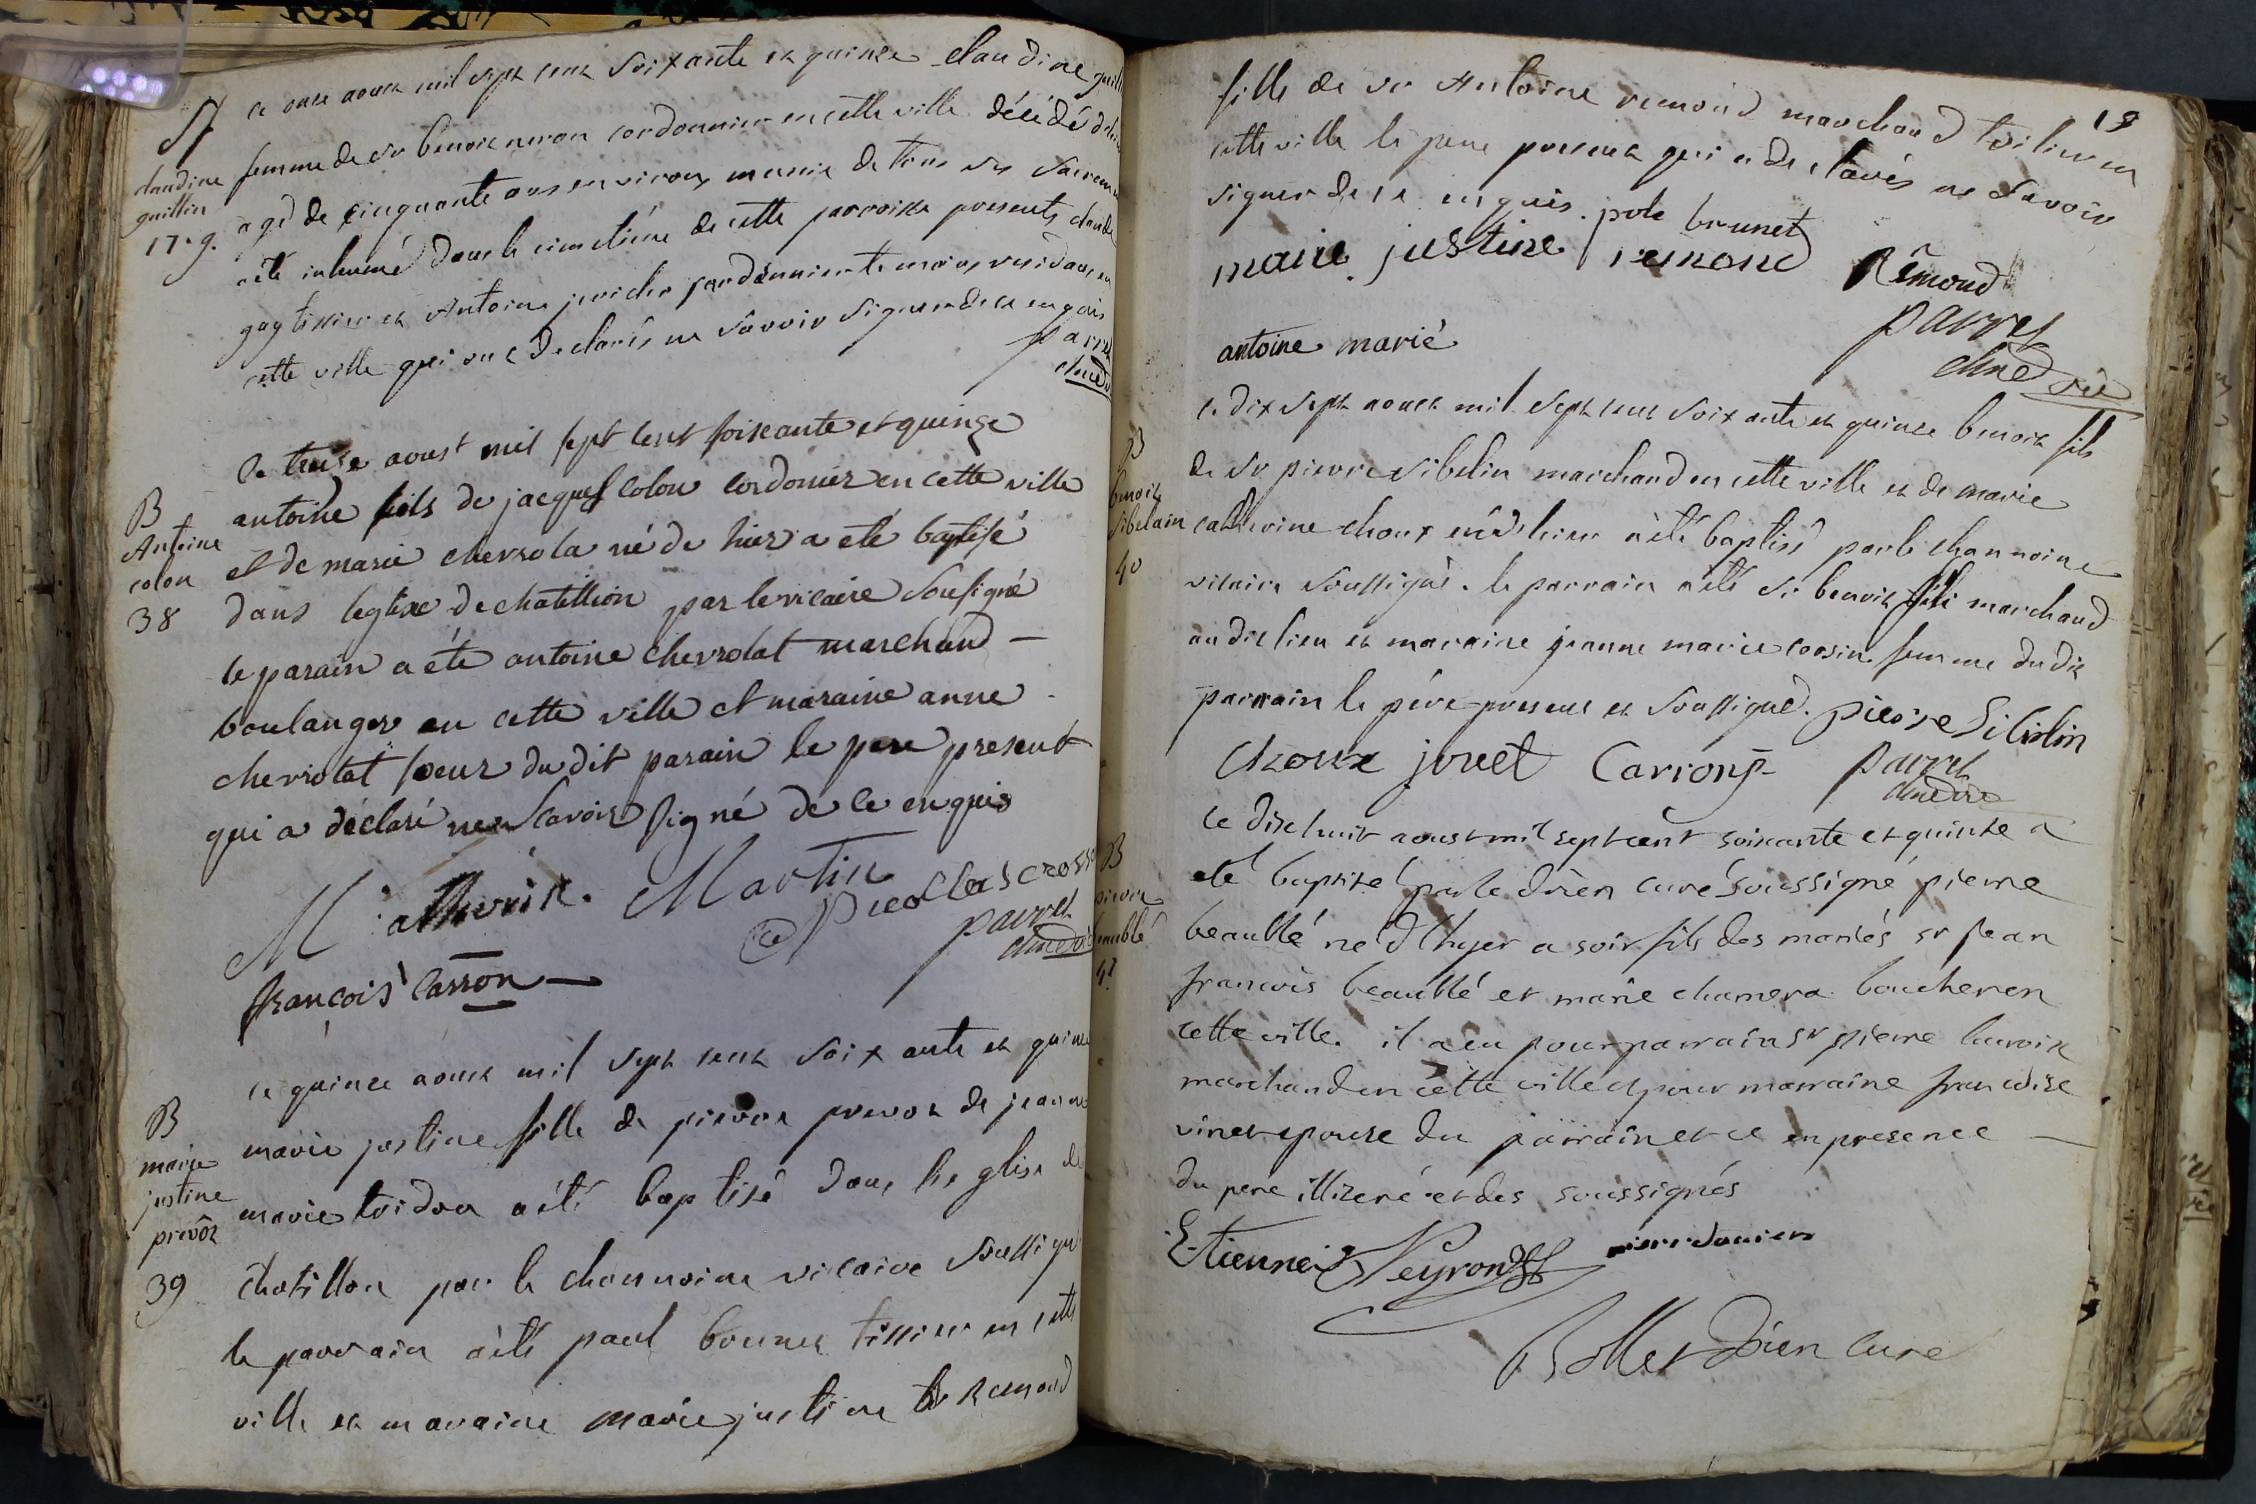 S
claudine
guillin
17. g.
ce onze aoust mil sept cent soixante et quinze claudine guill
femme de sr benoit neron cordonnier en cette ville décédé
agé de cinquante ans environ munie de tous ses sacremen
a été inhumé dans le cimetiére de cette parroisse presents claude
gay tissier et Antoine cordonnier temoins residans en
cette ville qui ont déclarés ne savoir signer de ce enquis
parret
chne
B
Antoine
colon
38
Le treize aoust mil sept cent soixante et quinze
antoine fils de jacques colon cordonier en cette ville
et de marie chevrola né de hier a eté baptisé
dans leglise de chatillion par le vicaire sousigné
le parain a été antoine chevrolat marchand
boulanger en cette ville et maraine anne
chevrolat soeur du dit parain le pere present
qui a déclaré ne scavoir signé de ce enquis
Martin
parret
chne vic
françois Carron
B
marie
justine
prevôt
39
ce quinze aoust mil sept cent soixante et quinze
marie justine fille de pierre prevot de jeanne
marie toidon a été baptisé dans leglise de
chatillon par le channoine vicaire soussigné
le parrain a été paul brunet tissier en cette
ville et maraine marie justine Remond
19
fille de sr Antoine remond marchand toilier en
cette ville le pere present qui a declarés ne savoir
signer de ce enquis. pole brunet
marie justine remond Rêmond
parret
chne vic
antoine marié
B
benoit
sibelain
40
ce dix sept aoust mil sept cent soixante et quinze benoit fils
de sr pierre sibelin marchand en cette ville et de marie
catherine choux né d'hier a été baptisé par le channoine
vicaire soussigné. le parrain a été sr benoit marchand
au dit lieu et maraine jeanne marie femme du dit
parrain le pére present et soussigné. pierre Sibelin
Choux juvet Carron parret
chne vic
B
pierre
beaublé
41
Le dixhuit aoust mil sept cent soixante et quinze a
eté baptisé par le doïen curé soussigné pierre
beaublé né d'hyer a soir fils des mariés sr jean
francois beaublé et marie chamera boucher en
cette ville. il a eu pour parrain sr pierre benoit
marchand en cette ville et pour marraine francoise
vinet epouse du parrain et ce en presence
du pere illiteré et des soussignés
Etienne Neyron
Bollet Doïen Curé